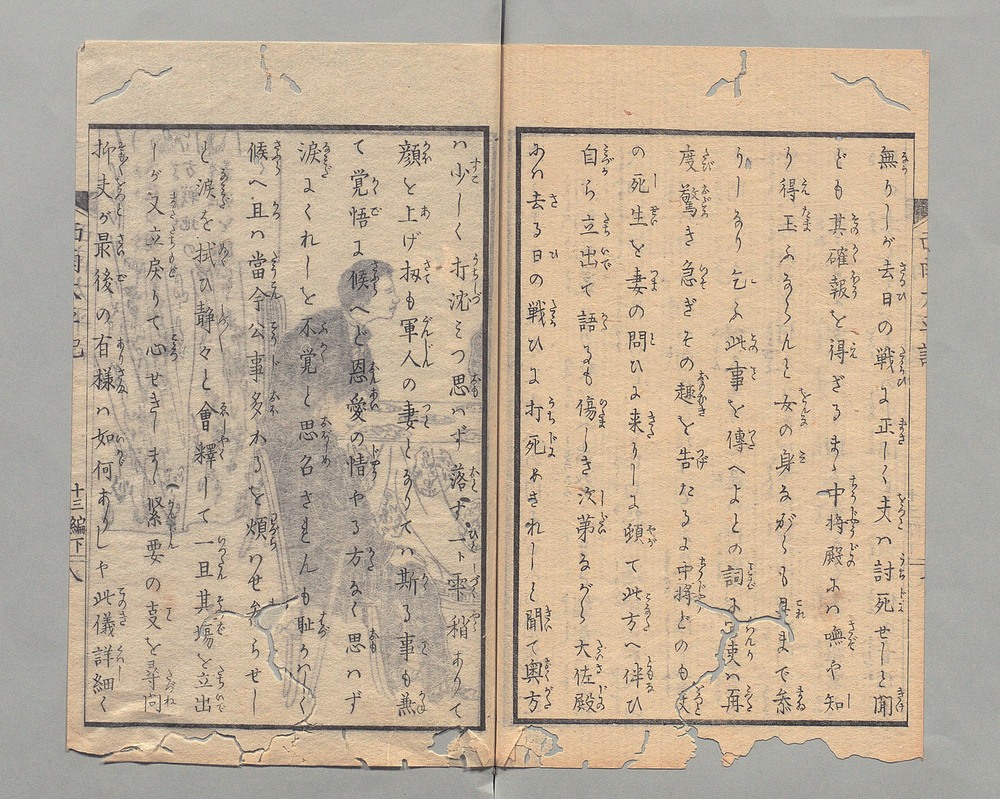 無りしが去日の戦に正しく夫ハ討死せしと聞
ども其確報を得ざるまゝ中将殿にハ嘸や知
り得玉ふならんと女の身ながらも是まで参
りしなり乞ふ此事を傳へよとの詞に
度驚き急ぎその趣を告たるに中将どのも
の死生を妻の問ひに来りしに頓て此方へ伴ひ
自ら立出て語るも傷しき次第ながら大佐殿
にハ去る日の戦ひに打死めされしと聞て奥方
ハ少しく打沈みつ思ハず落す一下雫稍ありて
顔を上げ扨も軍人の妻となりてハ斯る事も兼
て覚悟に候へど恩愛の情やる方なく思ハず
涙にくれしを不覚と思召されんも耻かしく
候へ且ハ當今公事多かるを煩ハせ参らせし
と涙を拭ひ静々と會釋して一旦其場を立出
しが又立戻りて心せきしまゝ緊要の支を尋問
抑夫が最後の有様ハ如何ありしや此儀詳細く
十三編下
八